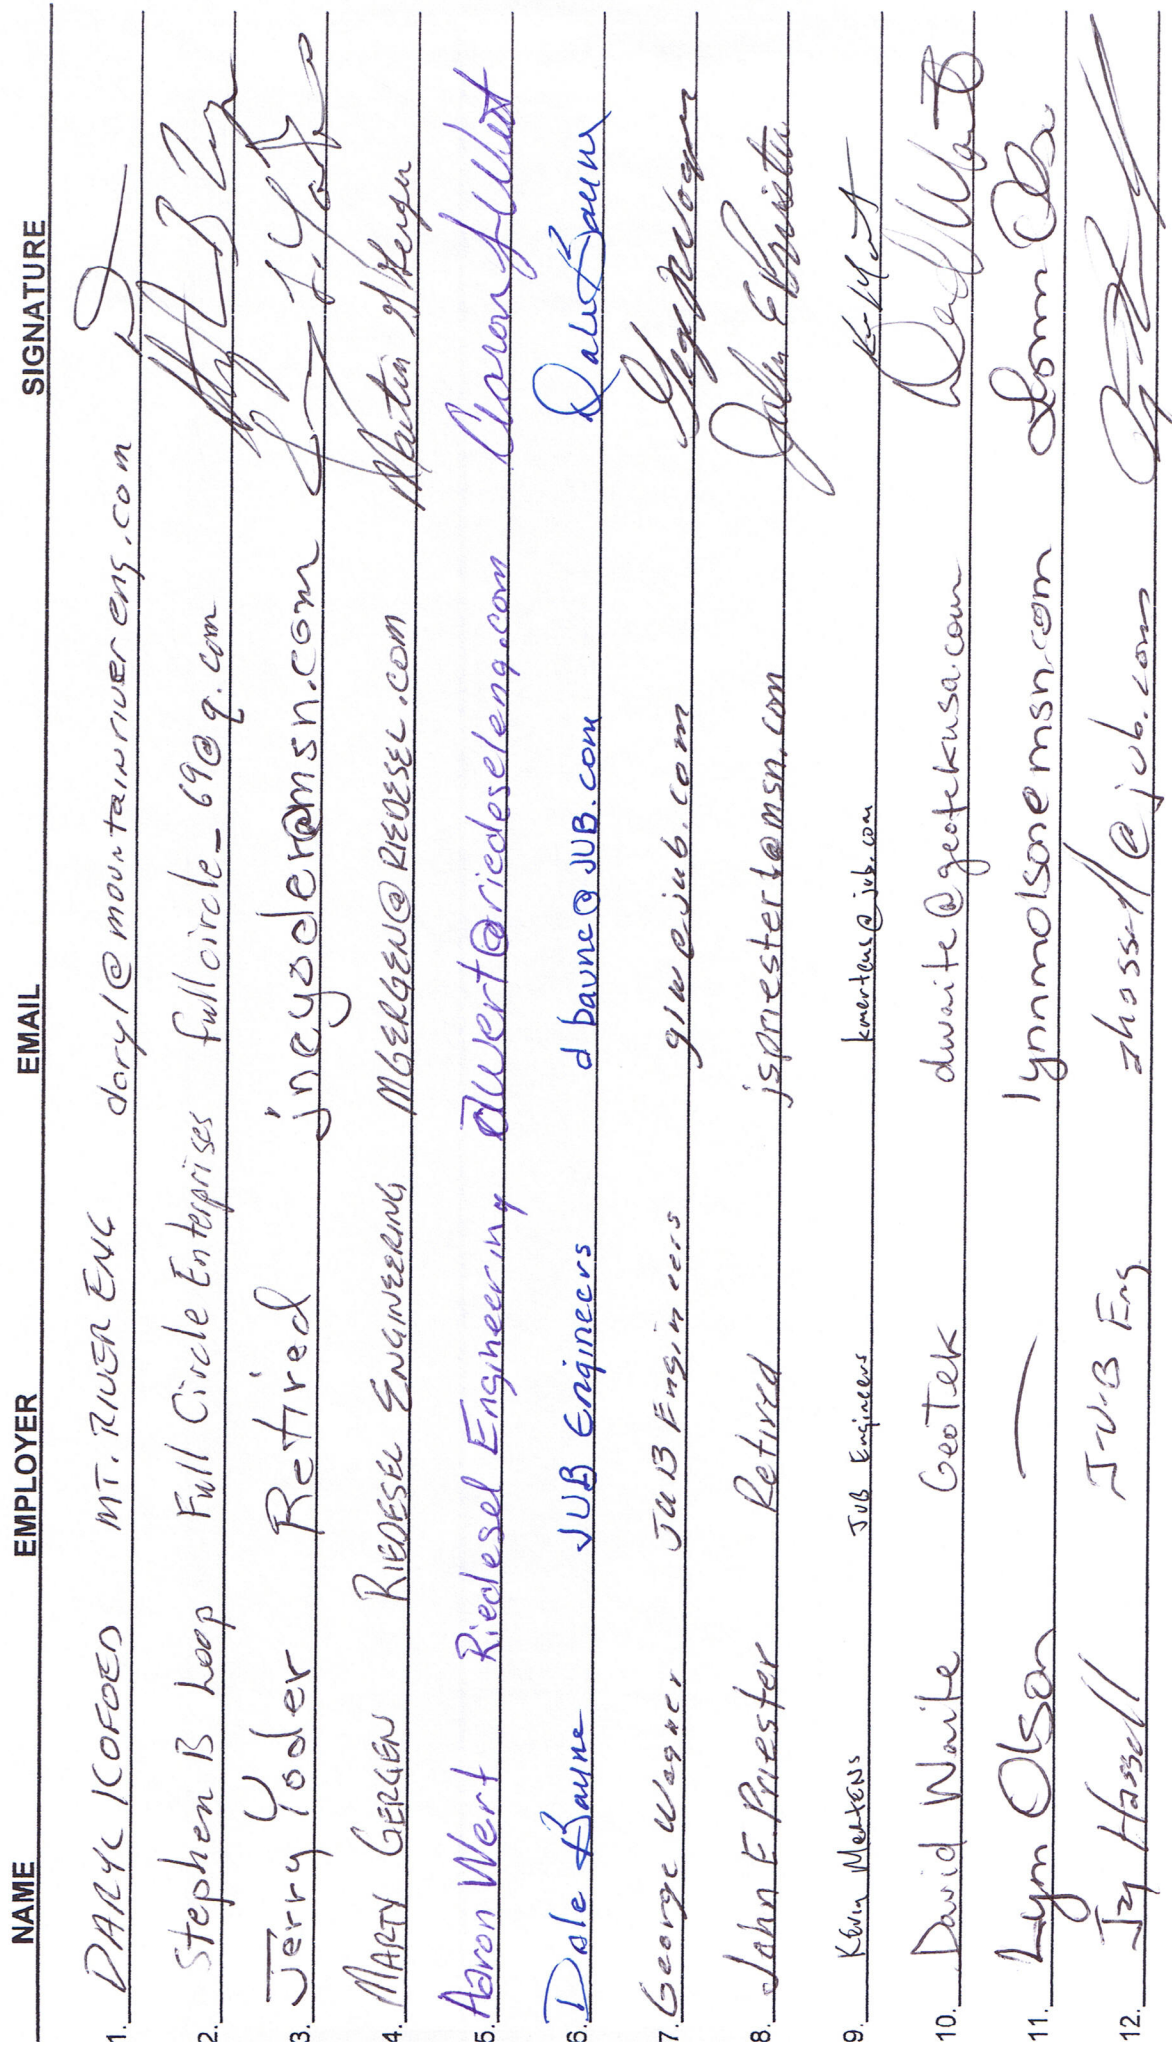 NAME EMPLOYER EMAIL SIGNATURE
1. DARYL KOFOED MT. RIVER ENG daryl@mountainrivereng.com
2. Stephen B Loop Full Circle Enterprises fullcircle_69@q.com
3. Jerry Yoder Retired jneyoder@msn.com
4. MARTY GERGEN RIEDESEL ENGINEERING MGERGEN@RIEDESEL.COM Martin Gergen
5. Aaron Wert Riedesel Engineering awert@riedeseleng.com Aaron J Wert
6. Dale Bayne JUB Engineers dbayne@JUB.com Dale Bayne
7. George Wagner JUB Engineers glw@jub.com
8. John E. Priester Retired jspriester@msn.com John E Priester
9. Kevin Mertens JUB Engineers kmertens@jub.com
10. David Waite GeoTek dwaite@geotekusa.com
11. Lynn Olson — lynnmolson@msn.com
12. Jay Hassell J-U-B Eng @jub.com